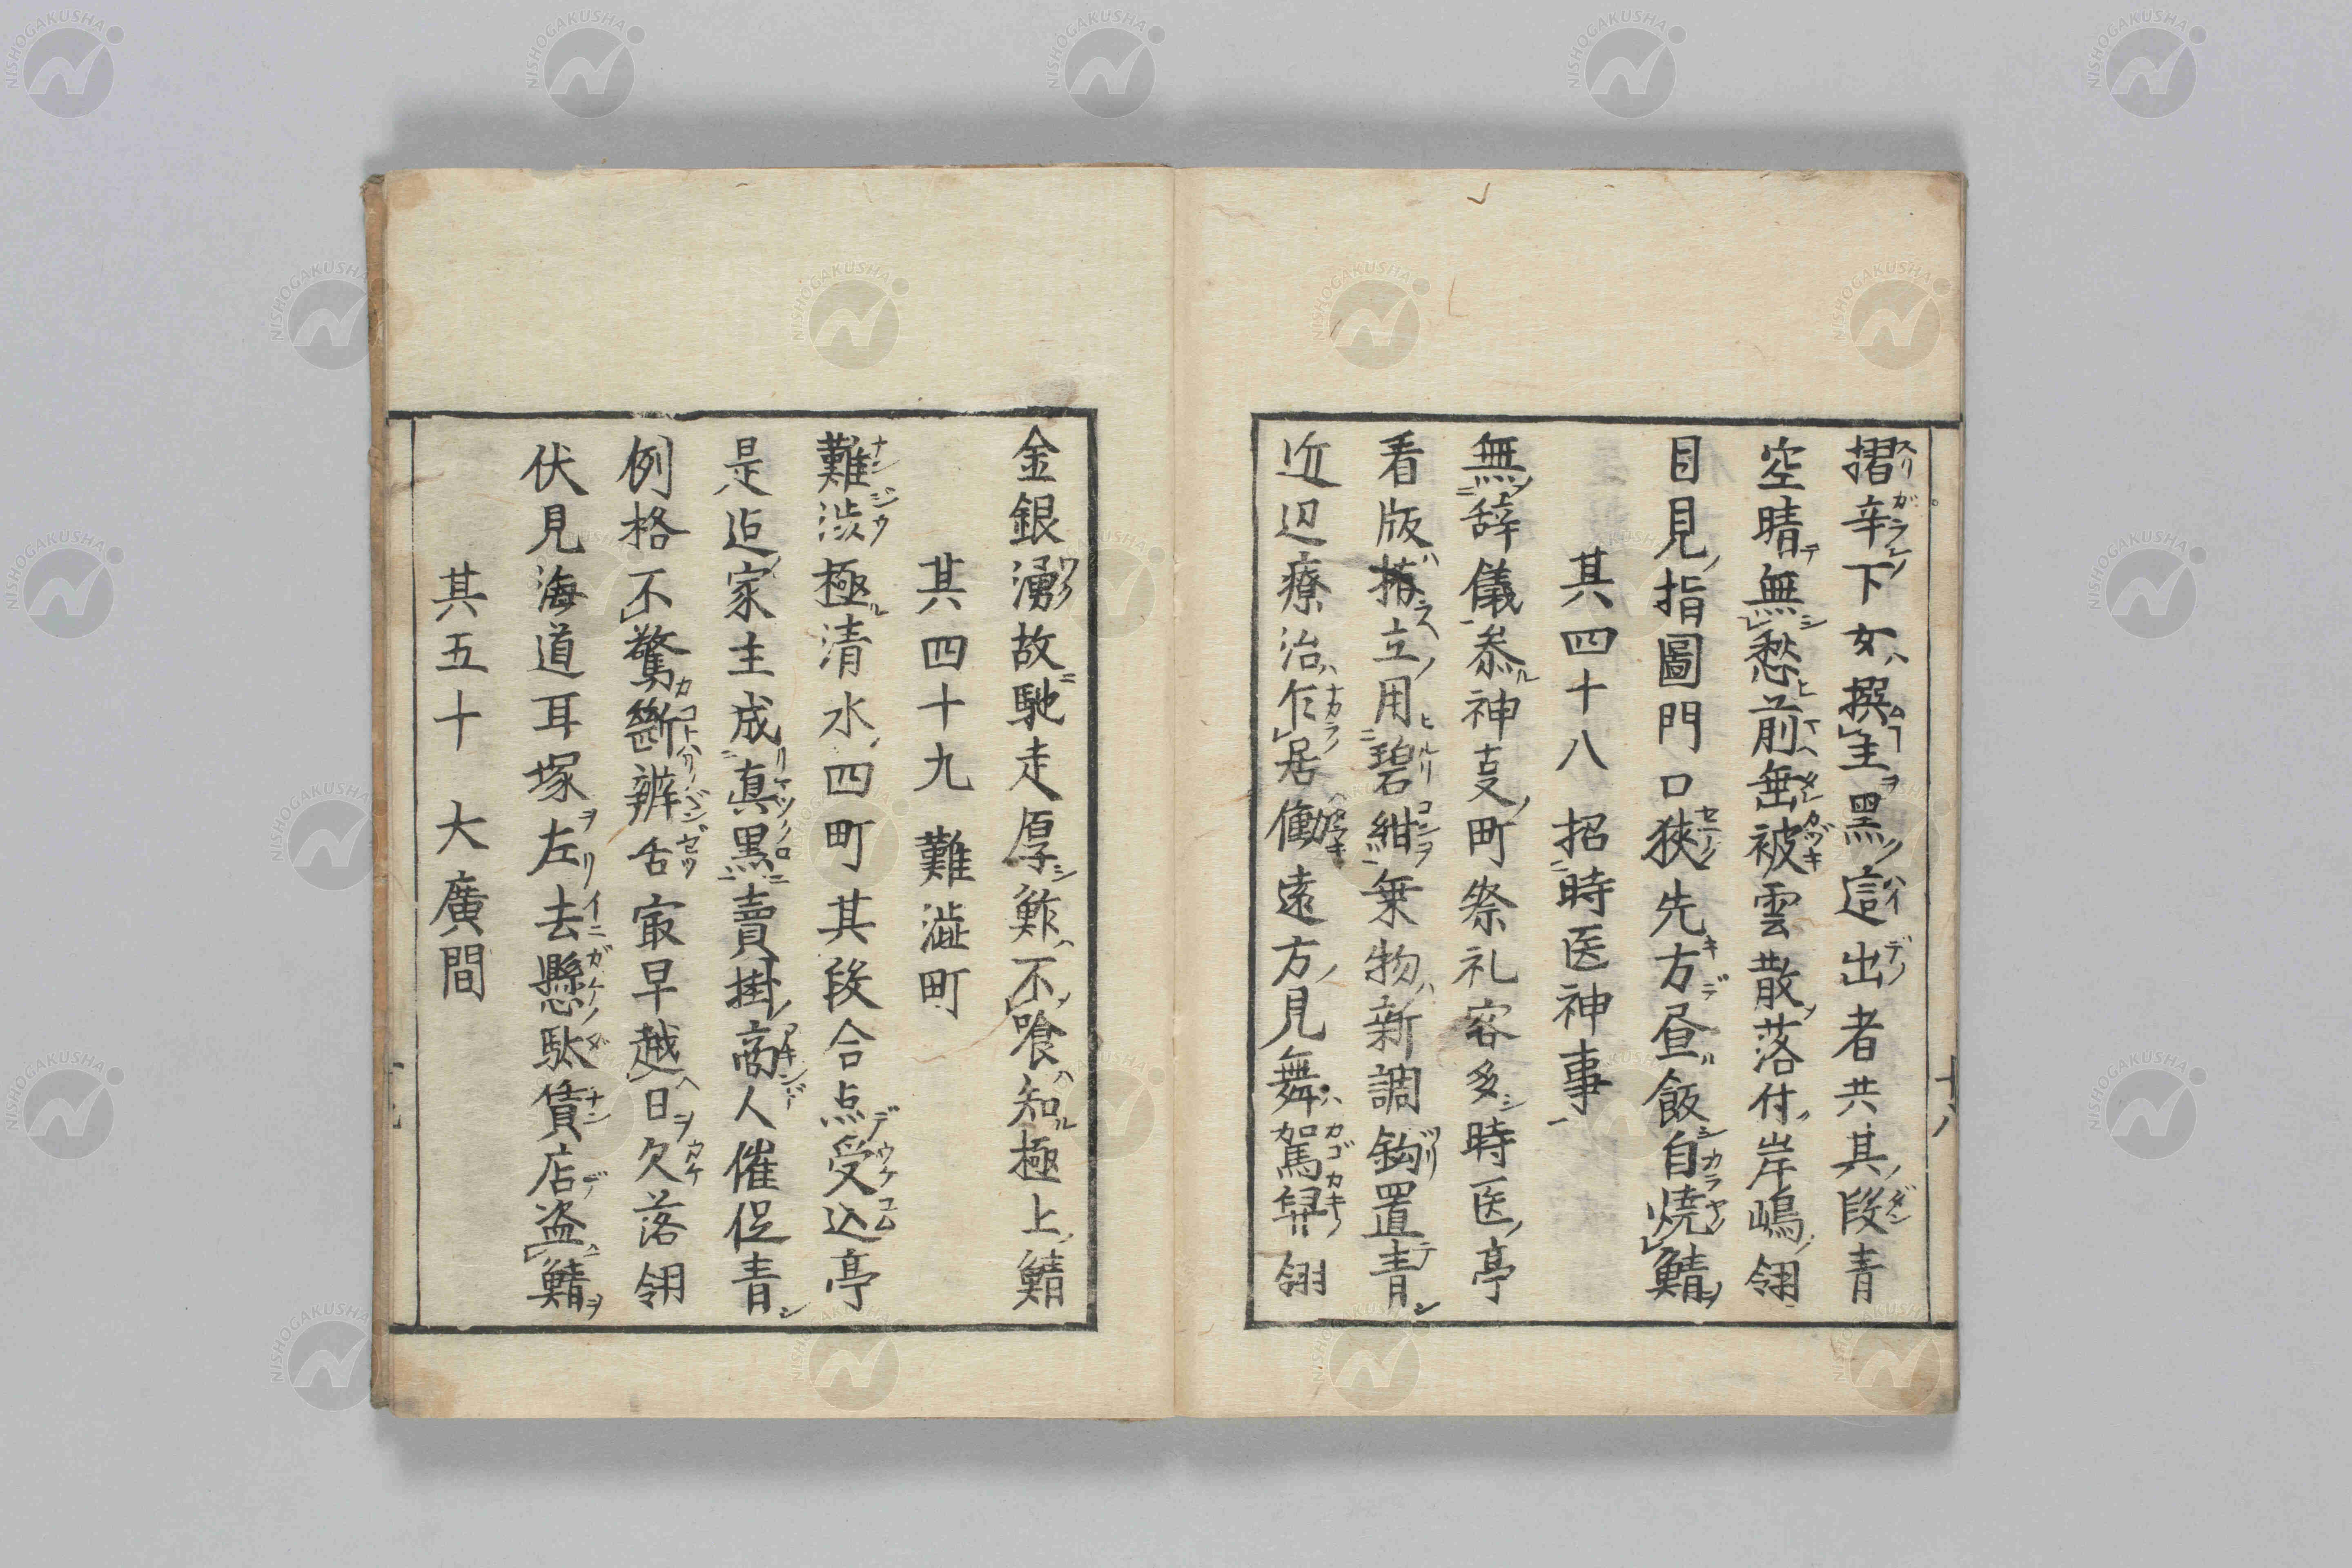 摺辛下女撰主黑這出者共其段青
空晴無愁前垂被雲散落付岸嶋翎
目見指圖門口狹先方昼飯自焼鯖
其四十八 招時医神事
無辞儀叅神㕝町祭礼客多時医亭
看版拵立用碧紺乗物新調鈎置青
近辺療治乍居働遠方見舞駕舁翎
十八
金銀湧故馳走厚鮓不喰知極上鯖
其四十九 難澁町
難渋極清水四町其段合点受込亭
是迠家主成真黒賣掛商人催促青
例格不驚斷辨舌㝡早越日欠落翎
伏見海道耳塚左去懸駄賃店盗鯖
其五十 大廣間
NISHOGAKUSHA